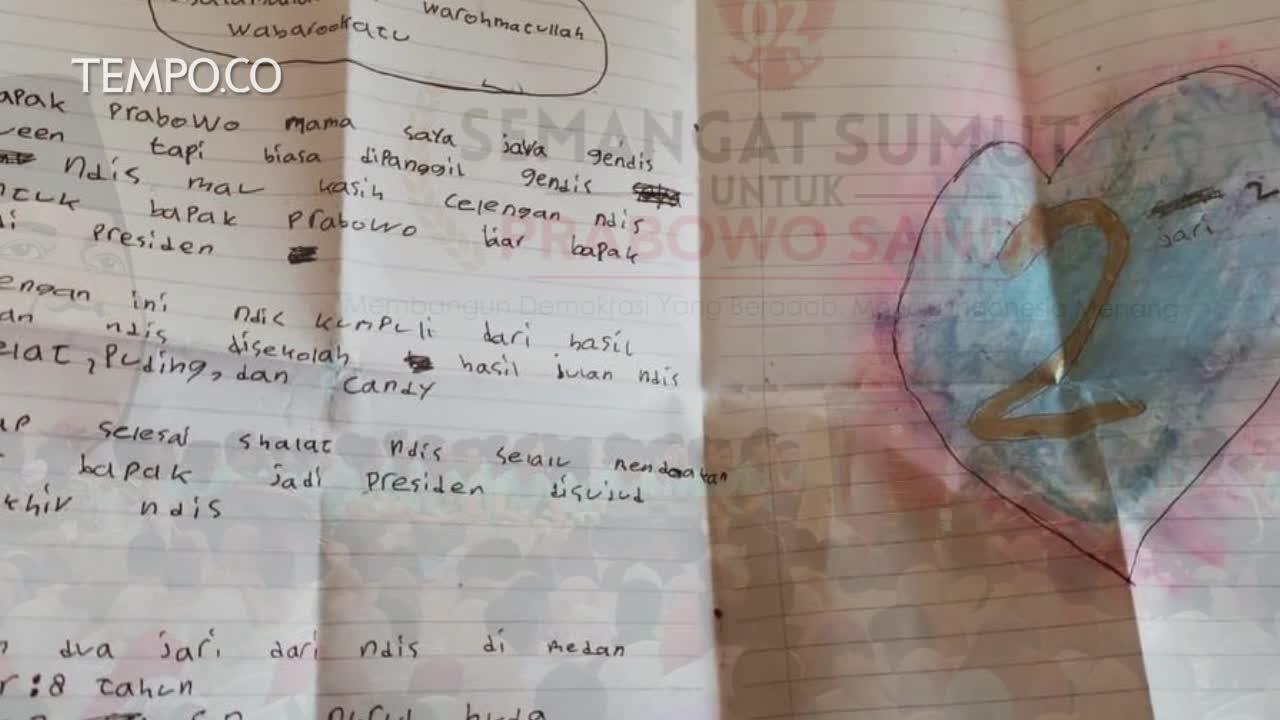 TEMPO.CO
warohmatullah
Wabarookatu
apak Prabowo mama saya java gendis
ueen tapi biasa dipanggil gendis
Ndis mau kasih celengan ndis
ntuk bapak Prabowo biar bapak
di Presiden
engan ini ndis kumpuli dari hasil
an ndis disekolah hasil julan ndis
elat, Puding, dan Candy
ap selesai shalat ndis selalu mendoakan
bapak jadi Presiden disujud
khir ndis
n dua jari dari ndis di medan
r : 8 tahun
nurul huda
02
SEMANGAT SUMUT
UNTUK
PRABOWO SANDI
Membangun Demokrasi Yang Beradab, Indonesia Menang
2
2
jari